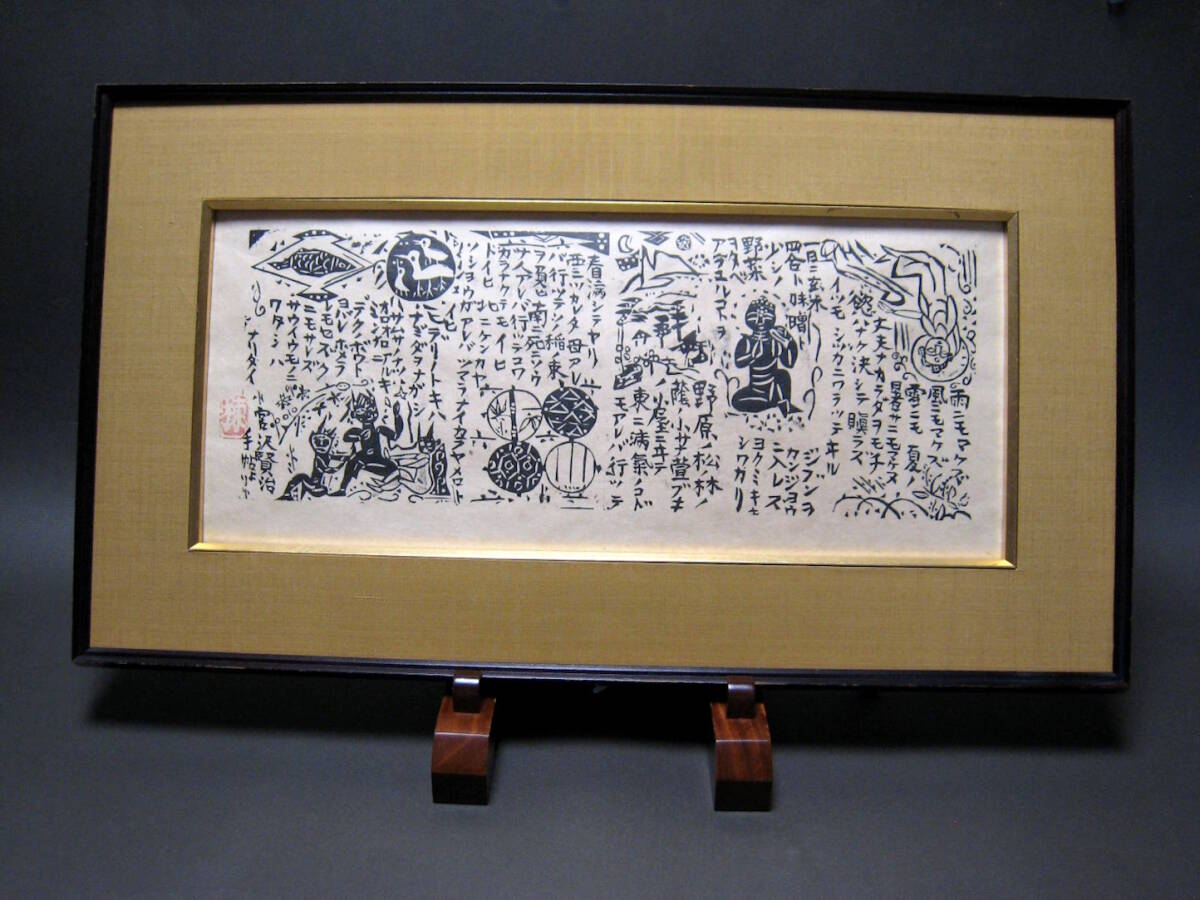 雨ニモマケズ
風ニモマケズ
雪ニモ夏ノ
暑サニモマケヌ
丈夫ナカラダヲモチ
慾ハナク決シテ瞋ラズ
イツモシヅカニワラッテヰル
一日ニ玄米
四合ト味噌
少シノ
野菜
ヲタベ
アラユルコトヲ
ジブンヲ
カンジョウ
ニ入レズ
ヨクミキキ
シワカリ
野原ノ松林ノ
蔭ノ小サ萱ブキ
小屋ニヰテ
東ニ病氣ノコドモ
モアレバ行ッテ
看病シテヤリ
西ニツカレタ母アレ
バ行ッテソノ稲ノ束
ヲ負ヒ南ニ死ニソウ
ナ人アレバ行ッテコワ
ガラナクテモイヽ
トイヒ北ニケンカヤ
ソショウガアレバツマラナイカラヤメロト
イヒ
ヒデリノトキハ
ナミダヲナガシ
サムサノナツハ
オロオロアルキ
ミンナニ
デクノボウト
ヨバレホメラ
レモセズク
ニモサレズ
サウイウモノニ
ワタシハ
ナリタイ
宮沢賢治
手帖より